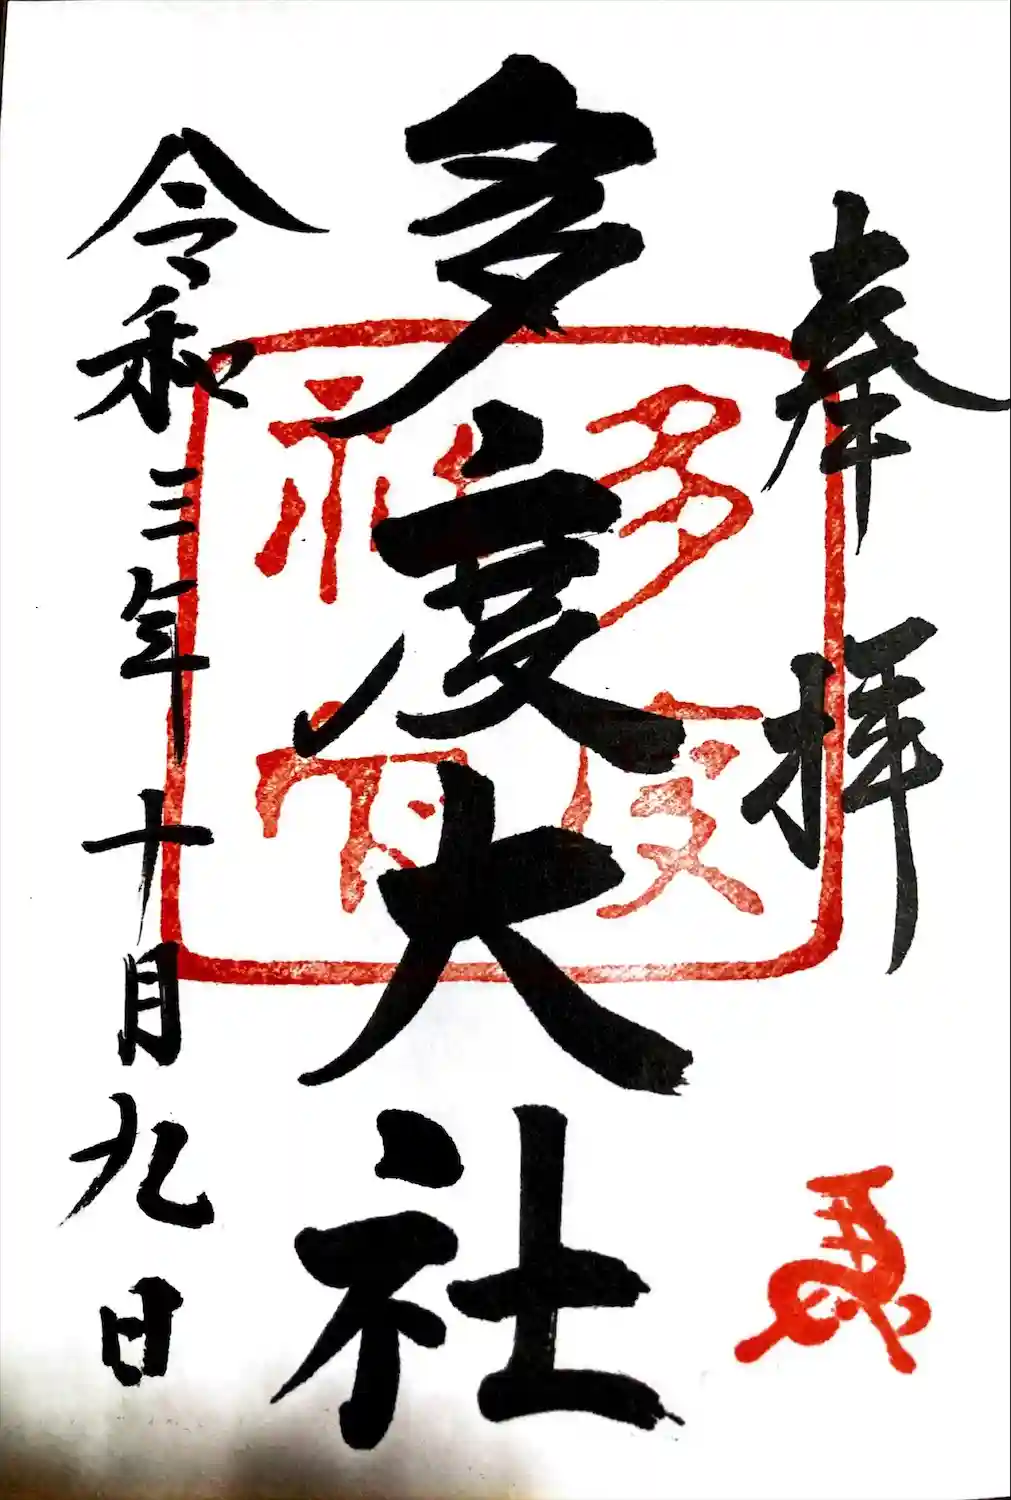 奉拝
多度大社
多度神社
令和三年十月九日